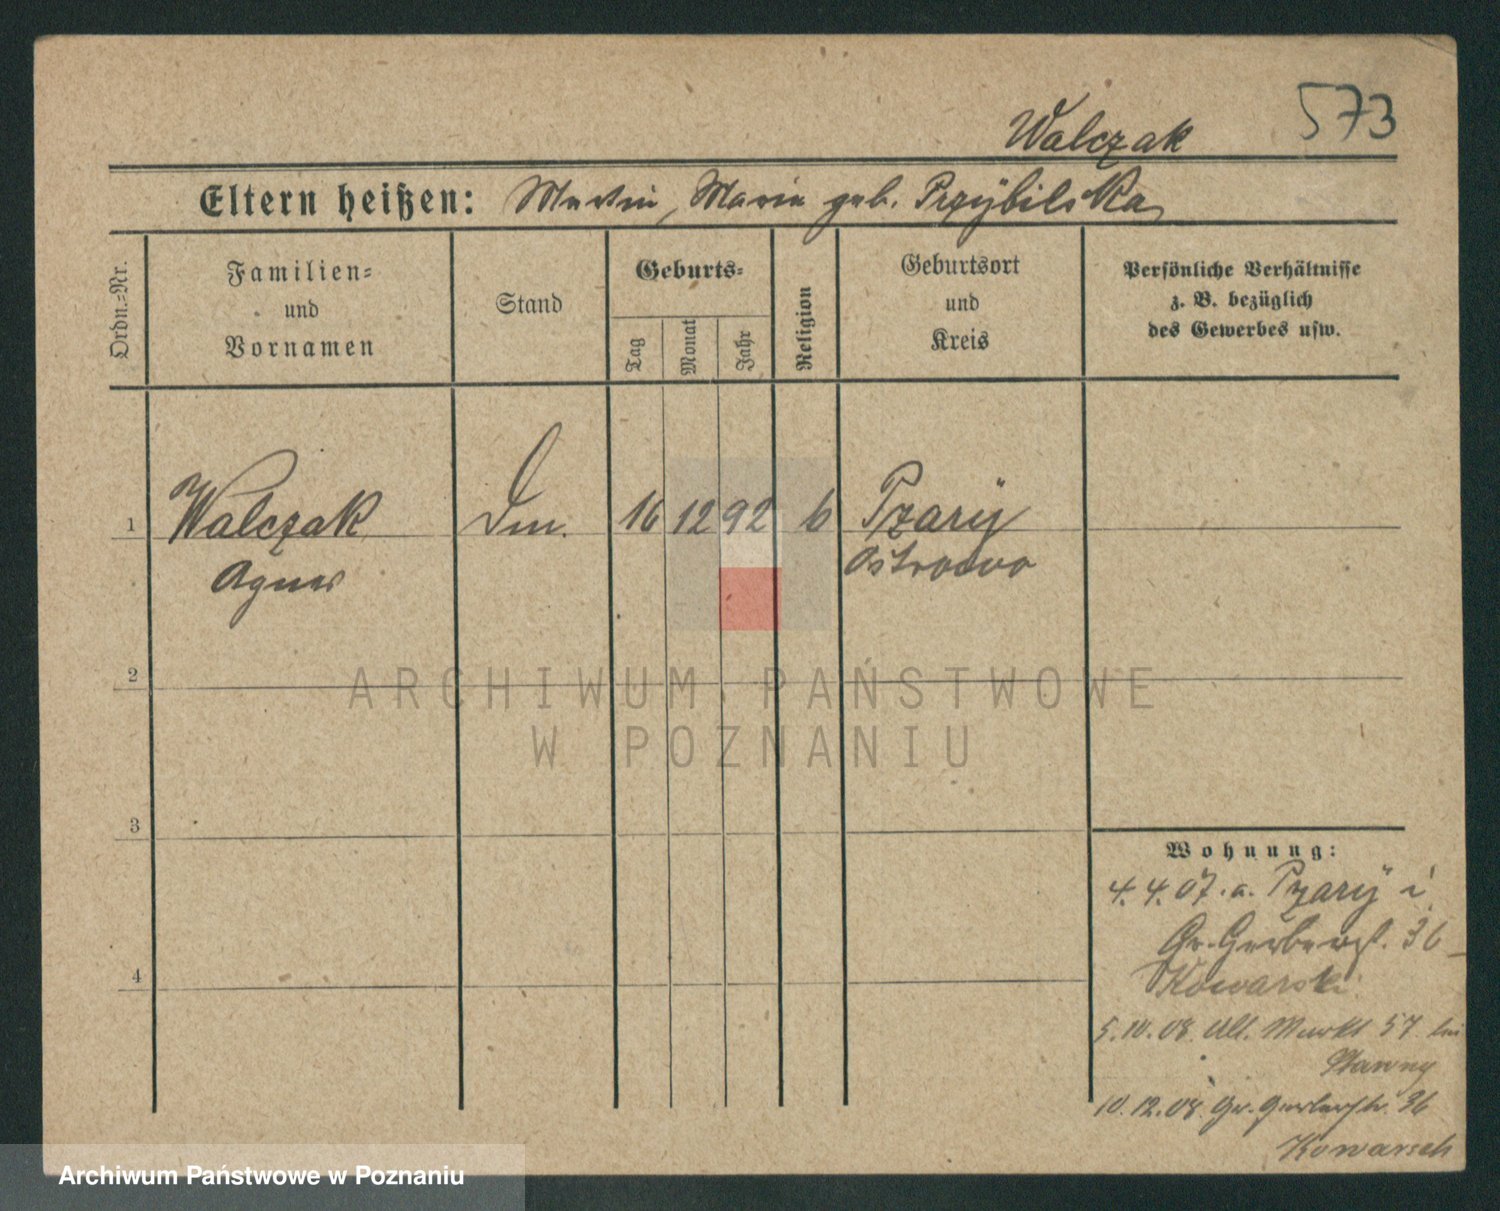 573
Walczak
Eltern heißen: Martin, Marie geb. Przybilska
Ordn.=Nr.
Familien=
und
Vornamen
Stand
Geburts=
Tag
Monat
Jahr
Religion
Geburtsort
und
Kreis
Persönliche Verhältnisse
z. B. bezüglich
des Gewerbes usw.
1
Walczak 16 12 92 Pzary
Agnes Ostrowo
2
ARCHIWUM PAŃSTWOWE
W POZNANIU
3
4
Wohnung:
4. 4. 07. a. Pzary i
Gr. Gerberst. 36
Kowarski
5.10.08. Alt. Markt 57 bei
Stawny
10.12.08. Gr. Gerberstr. 36
Kowarsch
Archiwum Państwowe w Poznaniu